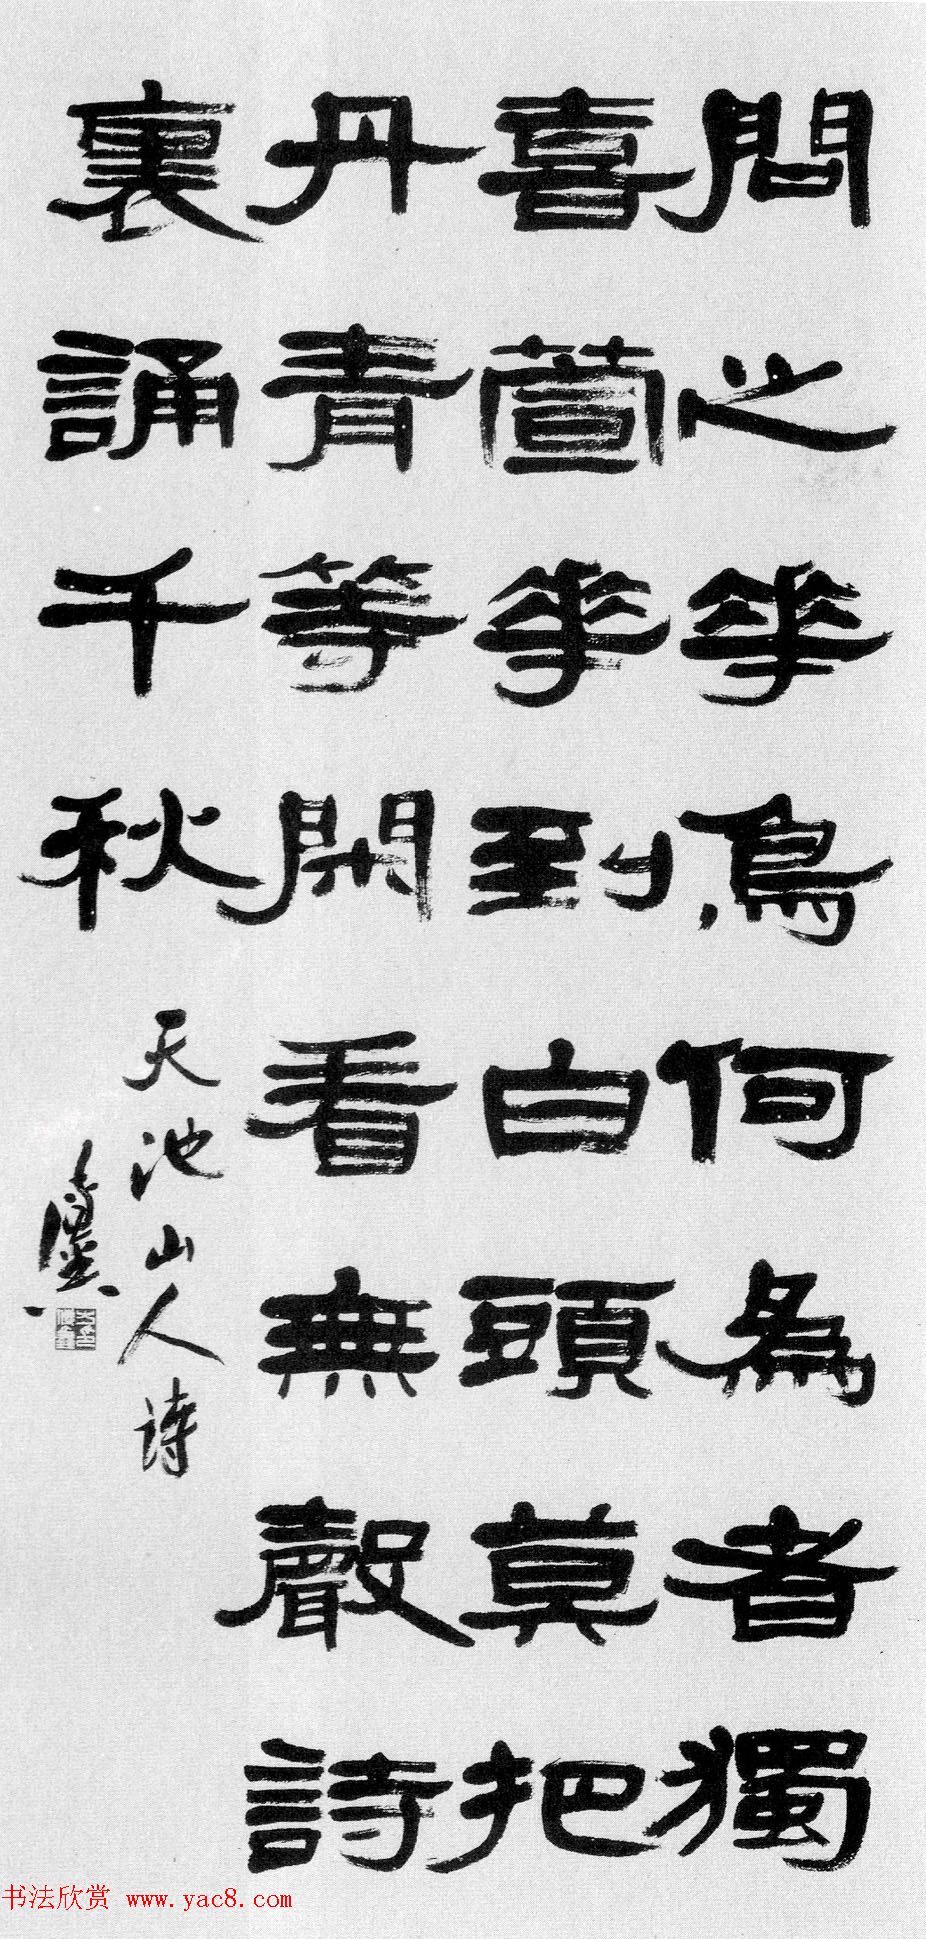 問之花鳥何為者獨
喜萱花到白頭莫把
丹青等閑看無聲詩
裏誦千秋
天池山人詩
书法欣赏 www.yac8.com